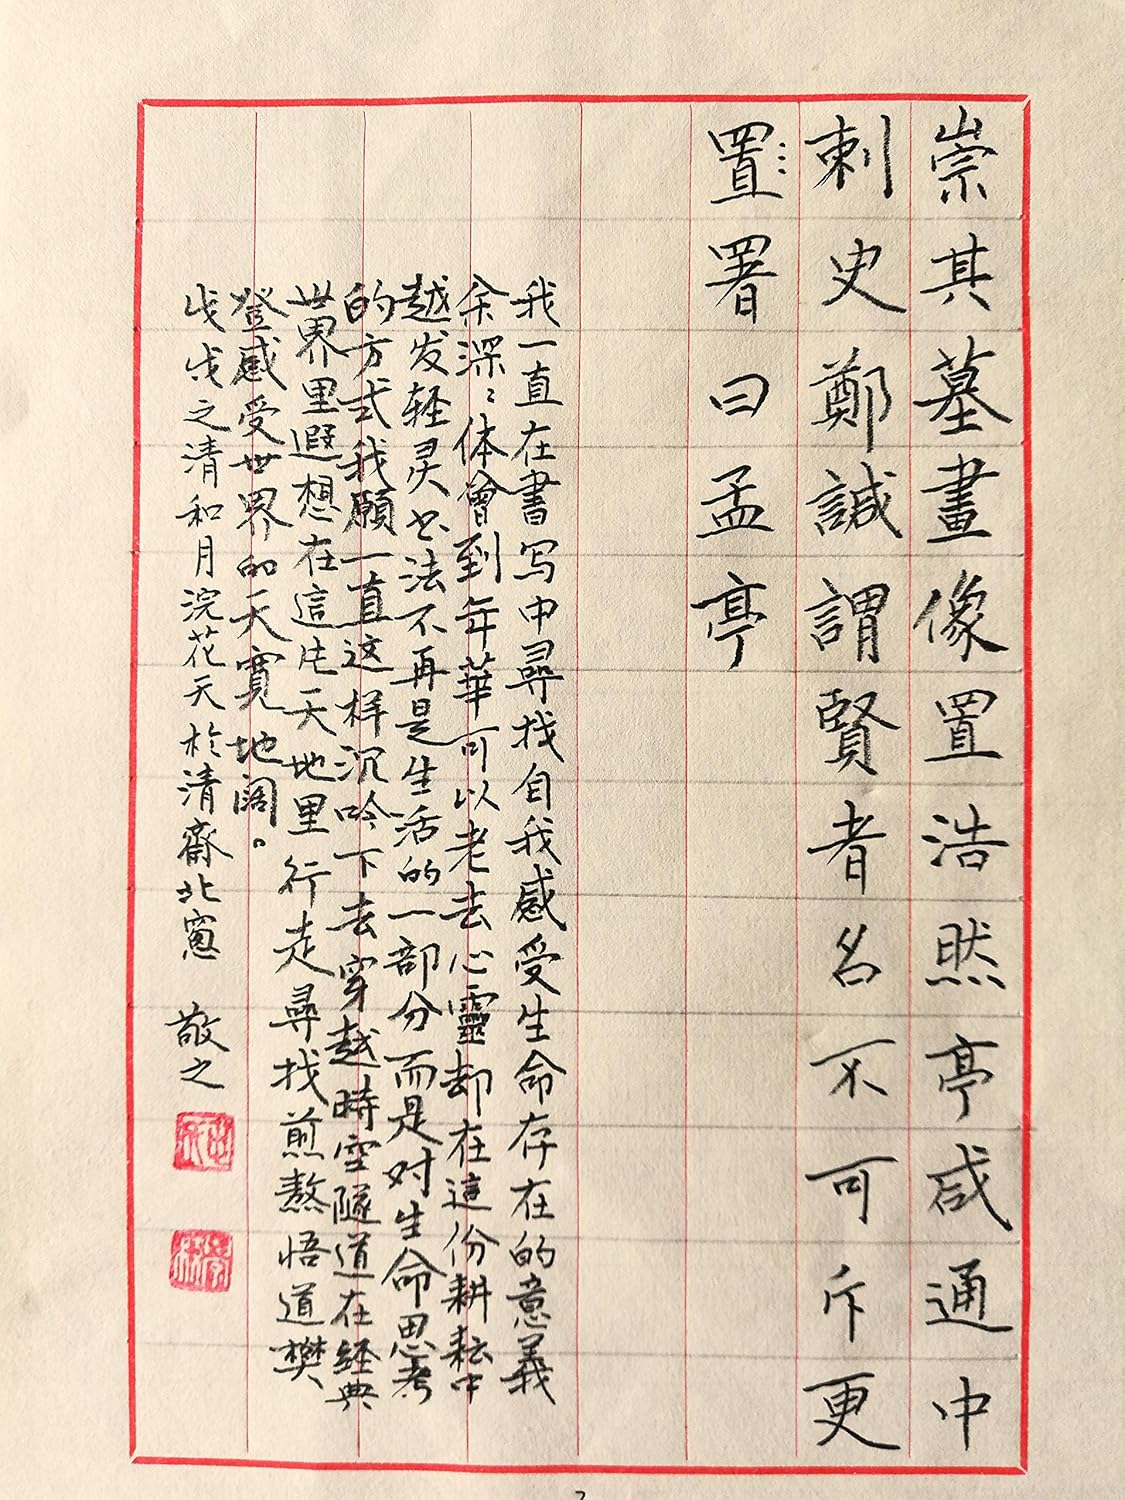 崇其墓畫像置浩然亭咸通中
刺史鄭諴謂賢者名不可斥更
置署曰孟亭
我一直在書写中尋找自我感受生命存在的意義
余深〻体會到年華可以老去心靈却在這份耕耘中
越发轻灵书法不再是生活的一部分而是对生命思考
的方式我願一直这样沉吟下去穿越時空隧道在经典
世界里遐想在這片天地里行走尋找煎熬悟道樊
登感受世界的天寬地阔。
戊戌之清和月浣花天於清齋北窗 敬之